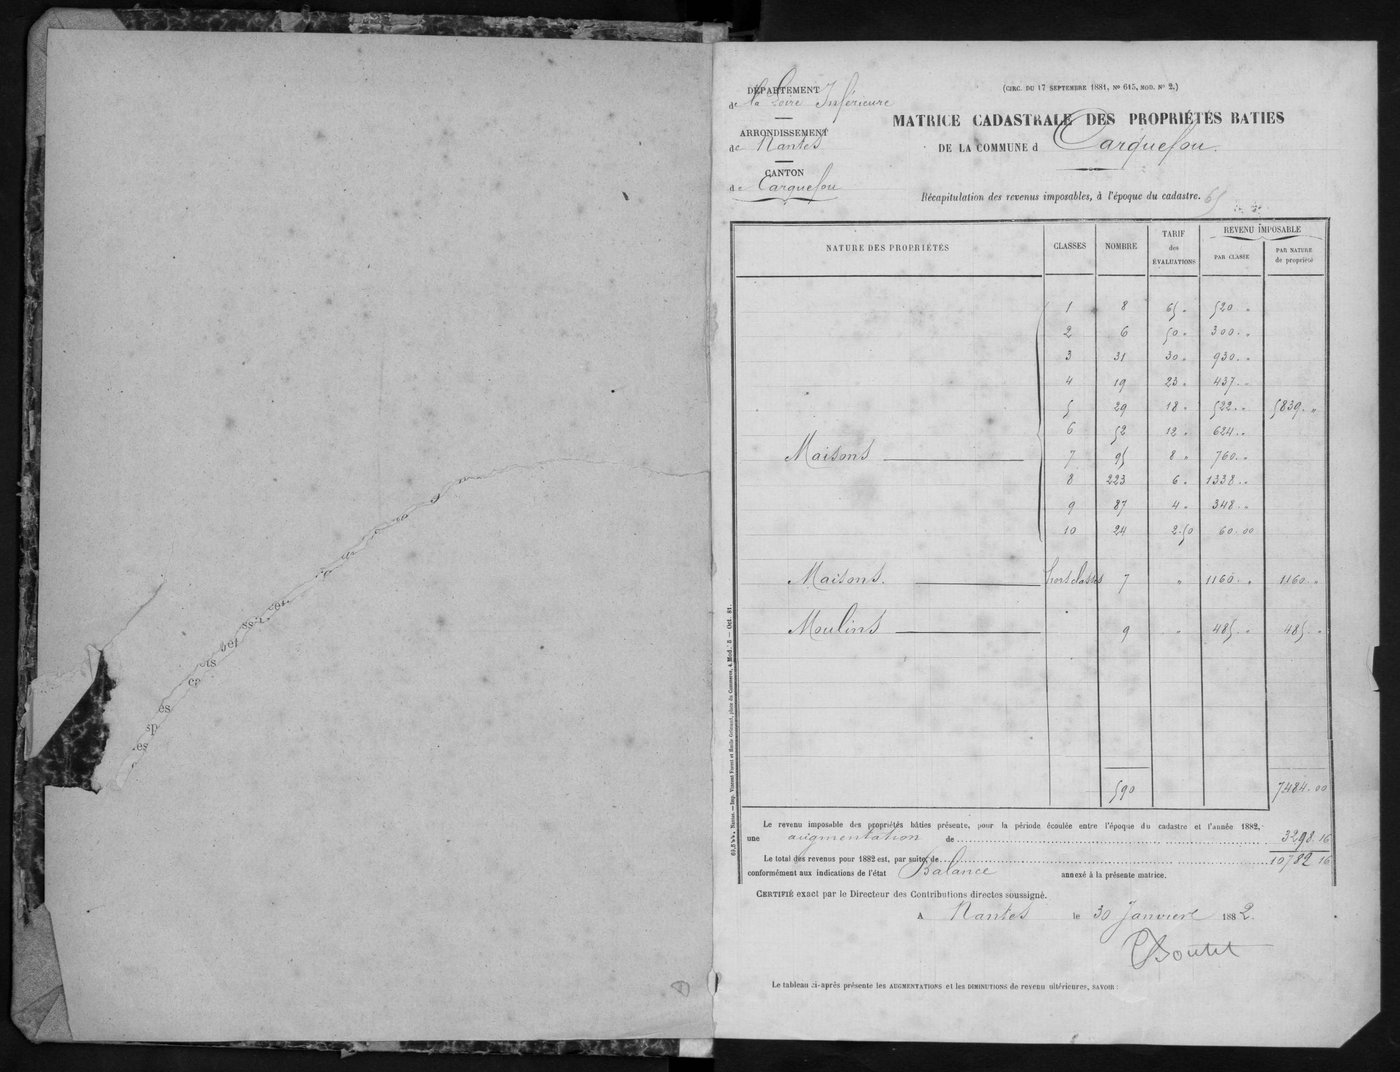 DÉPARTEMENT
de la Loire Inférieure
ARRONDISSEMENT
de Nantes
CANTON
de Carquefou
(CIRC. DU 17 SEPTEMBRE 1881, Nº 615, MOD. Nº 2.)
MATRICE CADASTRALE DES PROPRIÉTÉS BATIES
DE LA COMMUNE d Carquefou.
Récapitulation des revenus imposables, à l'époque du cadastre. 65
NATURE DES PROPRIÉTÉS CLASSES NOMBRE TARIF des ÉVALUATIONS REVENU IMPOSABLE
PAR CLASSE PAR NATURE de propriété
1 8 65 " 520 "
2 6 50 " 300 "
3 31 30 " 930 "
4 19 23 " 437 "
5 29 18 " 522 " 5839 "
6 52 12 " 624 "
Maisons 7 95 8 " 760 "
8 223 6 " 1338 "
9 87 4 " 348 "
10 24 2.50 60.00
Maisons. hors classes 7 " 1160 " 1160 "
Moulins 9 " 485 " 485 "
590 7484.00
Le revenu imposable des propriétés bâties présente, pour la période écoulée entre l'époque du cadastre et l'année 1882,
une augmentation de 3298 16
Le total des revenus pour 1882 est, par suite, de 10782 16
conformément aux indications de l'état Balance annexé à la présente matrice.
CERTIFIÉ exact par le Directeur des Contributions directes soussigné.
A Nantes le 30 Janvier 1882.
Boutet
Le tableau ci-après présente les AUGMENTATIONS et les DIMINUTIONS de revenu ultérieures, SAVOIR :